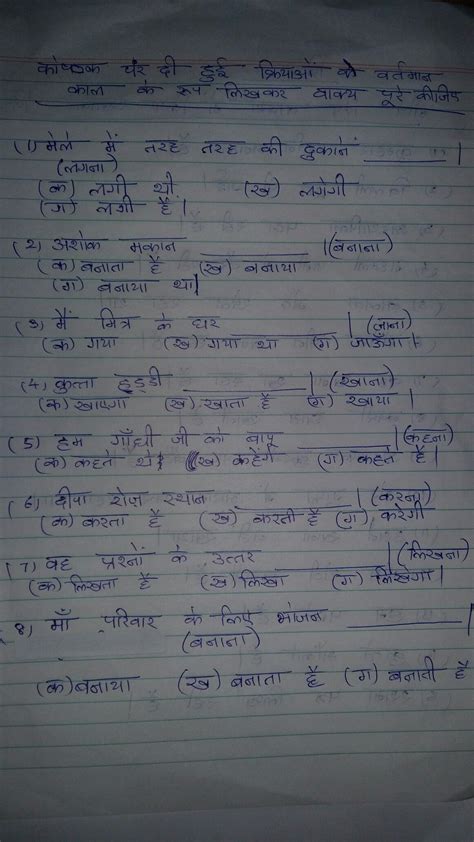 कोष्ठक पर दी हुई क्रियाओं को वर्तमान
काल के रूप लिखकर वाक्य पूरे कीजिए
(1) मेले में तरह तरह की दुकानें ________ |
(लगना)
(क) लगी थी (ख) लगेगी
(ग) लगी हैं |
(2) अशोक मकान ________ | (बनाना)
(क) बनाता है (ख) बनाया
(ग) बनाया था |
(3) मैं मित्र के घर ________ | (जाना)
(क) गया (ख) गया था (ग) जाऊँगा |
(4) कुत्ता हड्डी ________ | (खाना)
(क) खाएगा (ख) खाता है (ग) खाया |
(5) हम गाँधी जी को बापू ________ | (कहना)
(क) कहते थे | (ख) कहेंगे (ग) कहते हैं |
(6) दीपा रोज़ स्थान ________ | (करना)
(क) करता है (ख) करती है (ग) करेगी
(7) वह प्रश्नों के उत्तर ________ | (लिखना)
(क) लिखता है (ख) लिखा (ग) लिखेगा |
(8) माँ परिवार के लिए भोजन ________ |
(बनाना)
(क) बनाया (ख) बनाता है (ग) बनाती है